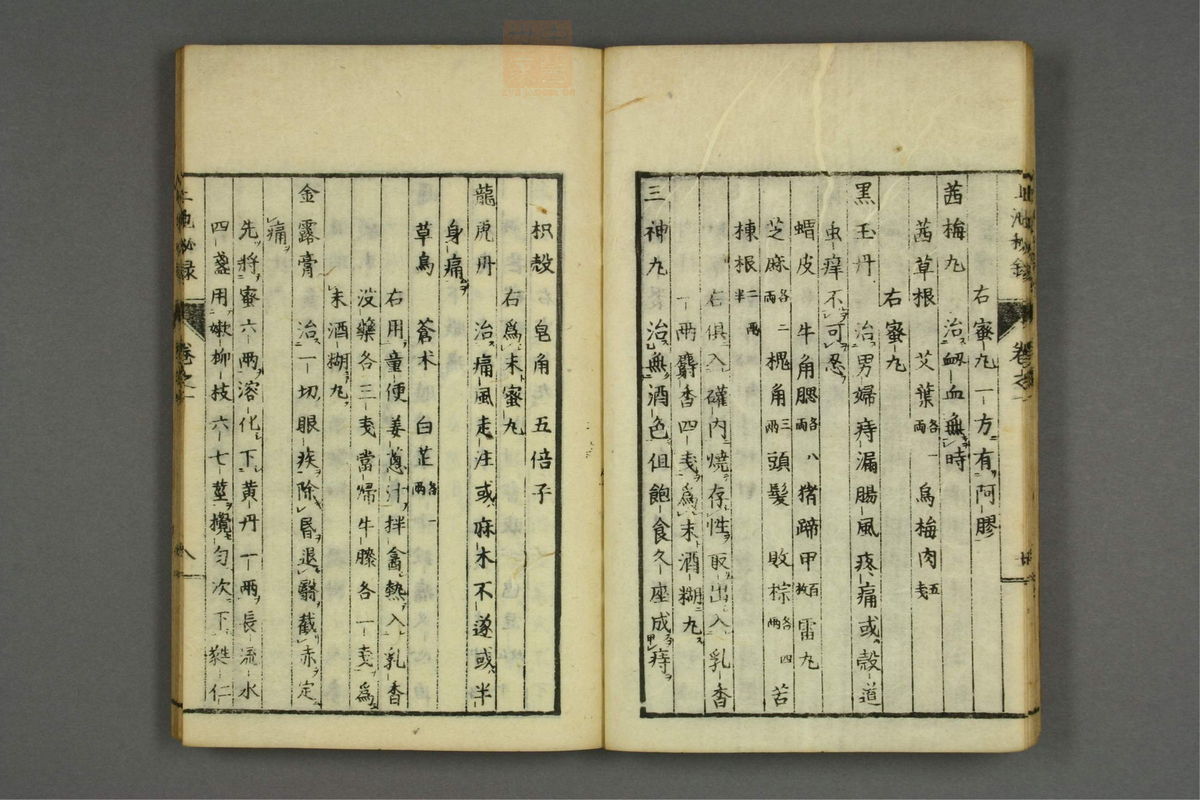 右蜜丸一方有阿膠
茜梅丸 治衂血無時
茜草根 艾葉各一兩 烏梅肉五戔
右蜜丸
黑玉丹 治男婦痔漏腸風疼痛或殼道
虫痒不可忍
蝟皮 牛角腮各八兩 猪蹄甲百枚 雷丸
芝麻各二兩 槐角三兩 頭髮 敗棕各四兩 苦
楝根二兩半
右俱入礶内燒存性取出入乳香
一兩麝香四戔爲末酒糊丸
三神丸 治無酒色但飽食久座成痔
枳殼 皂角 五倍子
右爲末蜜丸
龍虎丹 治痛風走注或麻木不遂或半
身痛
草烏 蒼术 白芷各一兩
右用童便姜葱汁拌盦熱入乳香
没藥各三戔當歸牛膝各一戔爲
末酒糊丸
金露膏 治一切眼疾除昏退翳截赤定
痛
先將蜜六兩溶化下黄丹一兩長流水
四盞用嫩柳枝六七莖攪匀次下蕤仁
卷之一
八